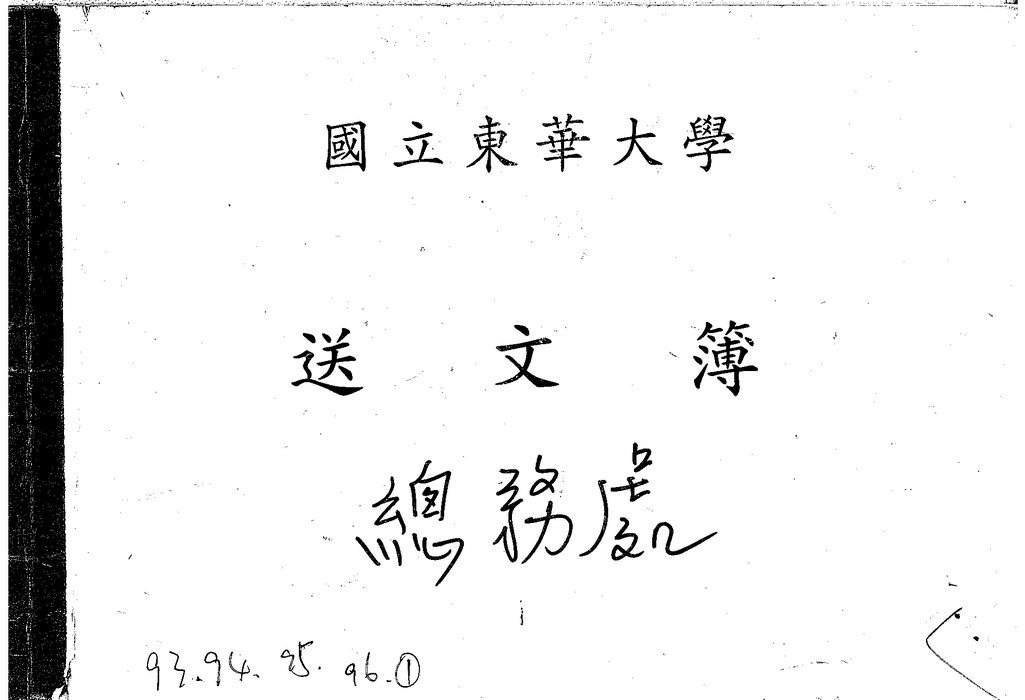 國立東華大學
送文簿
總務處
93.94.95.96.①